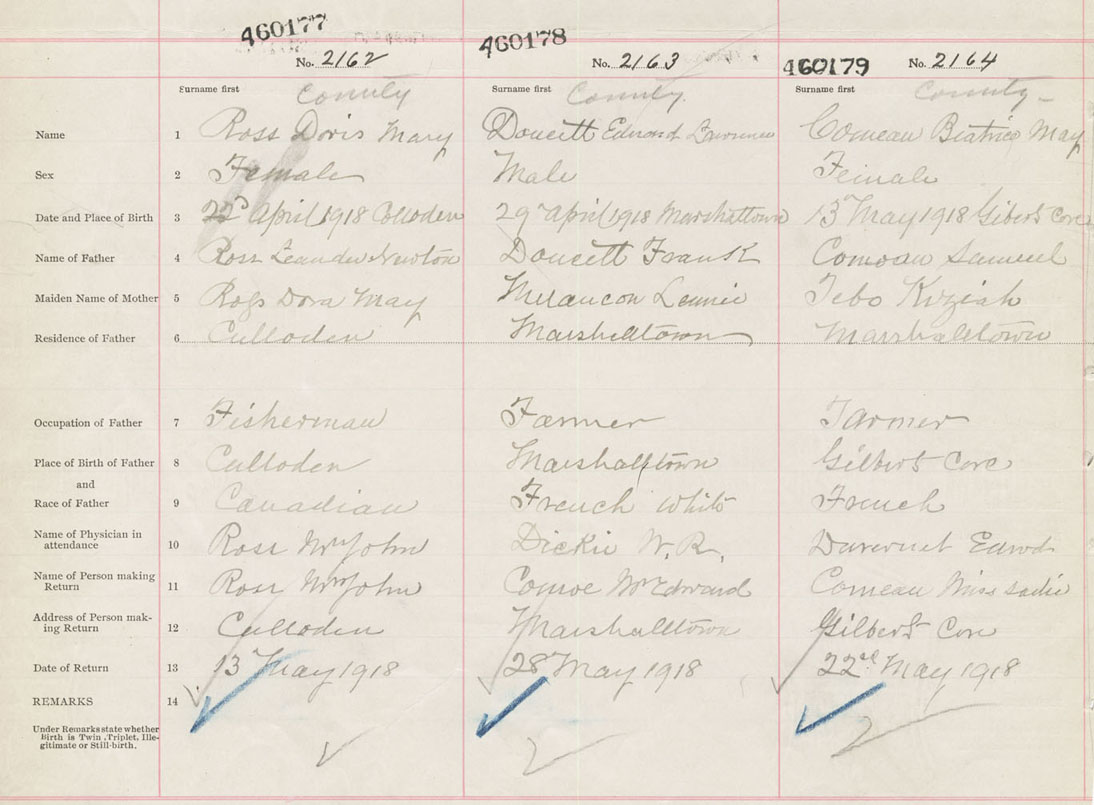 460177 460178 460179
No. 2162 No. 2163 No. 2164
Surname first County Surname first County. Surname first County
Name 1 Ross Doris Mary Doucett Edmond Lawrence Comeau Beatrice May
Sex 2 Female Male Female
Date and Place of Birth 3 22d April 1918 Colloden 29th April 1918 Marshalltown 13th May 1918 Gibert Cove
Name of Father 4 Ross Leander Newton Doucett Frank Comeau Samuel
Maiden Name of Mother 5 Ross Dora May Melancon Lennie Tebo Kiziah
Residence of Father 6 Culloden Marshalltown Marshalltown
Occupation of Father 7 Fisherman Farmer Farmer
Place of Birth of Father 8 Culloden Marshalltown Gilbert Cove
and
Race of Father 9 Canadian French White French
Name of Physician in
attendance 10 Rose Mrs John Dickie W. R.
Name of Person making
Return 11 Rose Mrs John Comoe Mrs Edward Comeau Miss Sadie
Address of Person mak-
ing Return 12 Culloden Marshalltown Gilbert Cove
Date of Return 13 13th May 1918 28th May 1918 22nd May 1918
REMARKS 14
Under Remarks state whether
Birth is Twin, Triplet, Ille-
gitimate or Still-birth.